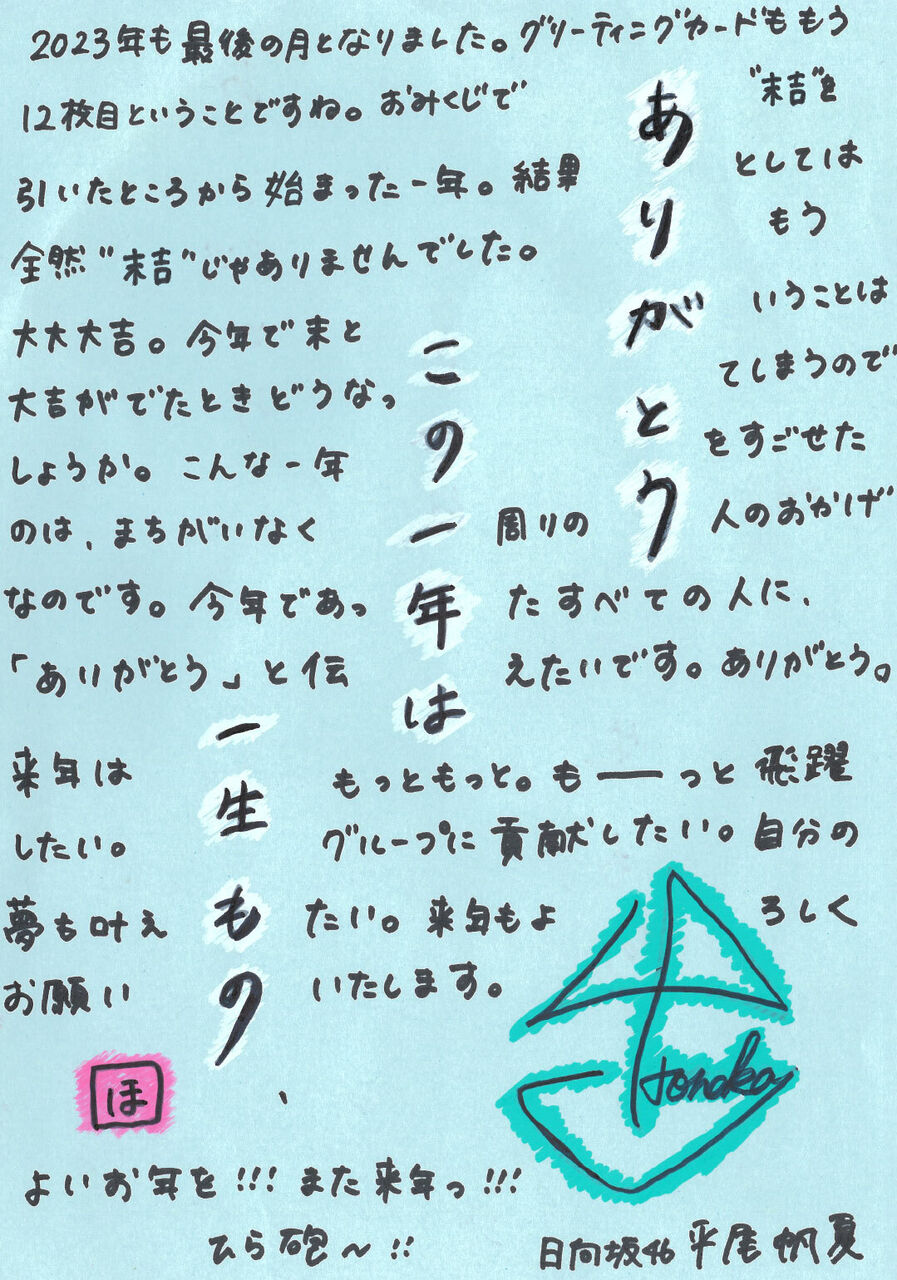 2023年も最後の月となりました。グリーティングカードももう
12枚目ということですね。おみくじで"末吉"を
引いたところから始まった一年。結果としてはもう
全然"末吉"じゃありませんでした。
大大大吉。今年で末というこは
大吉がでたときどうなってしまうので
しょうか。こんな一年をすごせた
のは、まちがいなく周りの人のおかげ
なのです。今年であったすべての人に、
「ありがとう」と伝えたいです。ありがとう。
来年はもっともっと。もーっと飛躍
したい。グループに貢献したい。自分の
夢も叶えたい。来年もよろしく
お願いいたします。
ありがとう
この一年は
一生もの
ほ
honoka
よいお年を!!! また来年っ!!!
ひら砲〜!!
日向坂46 平尾帆夏